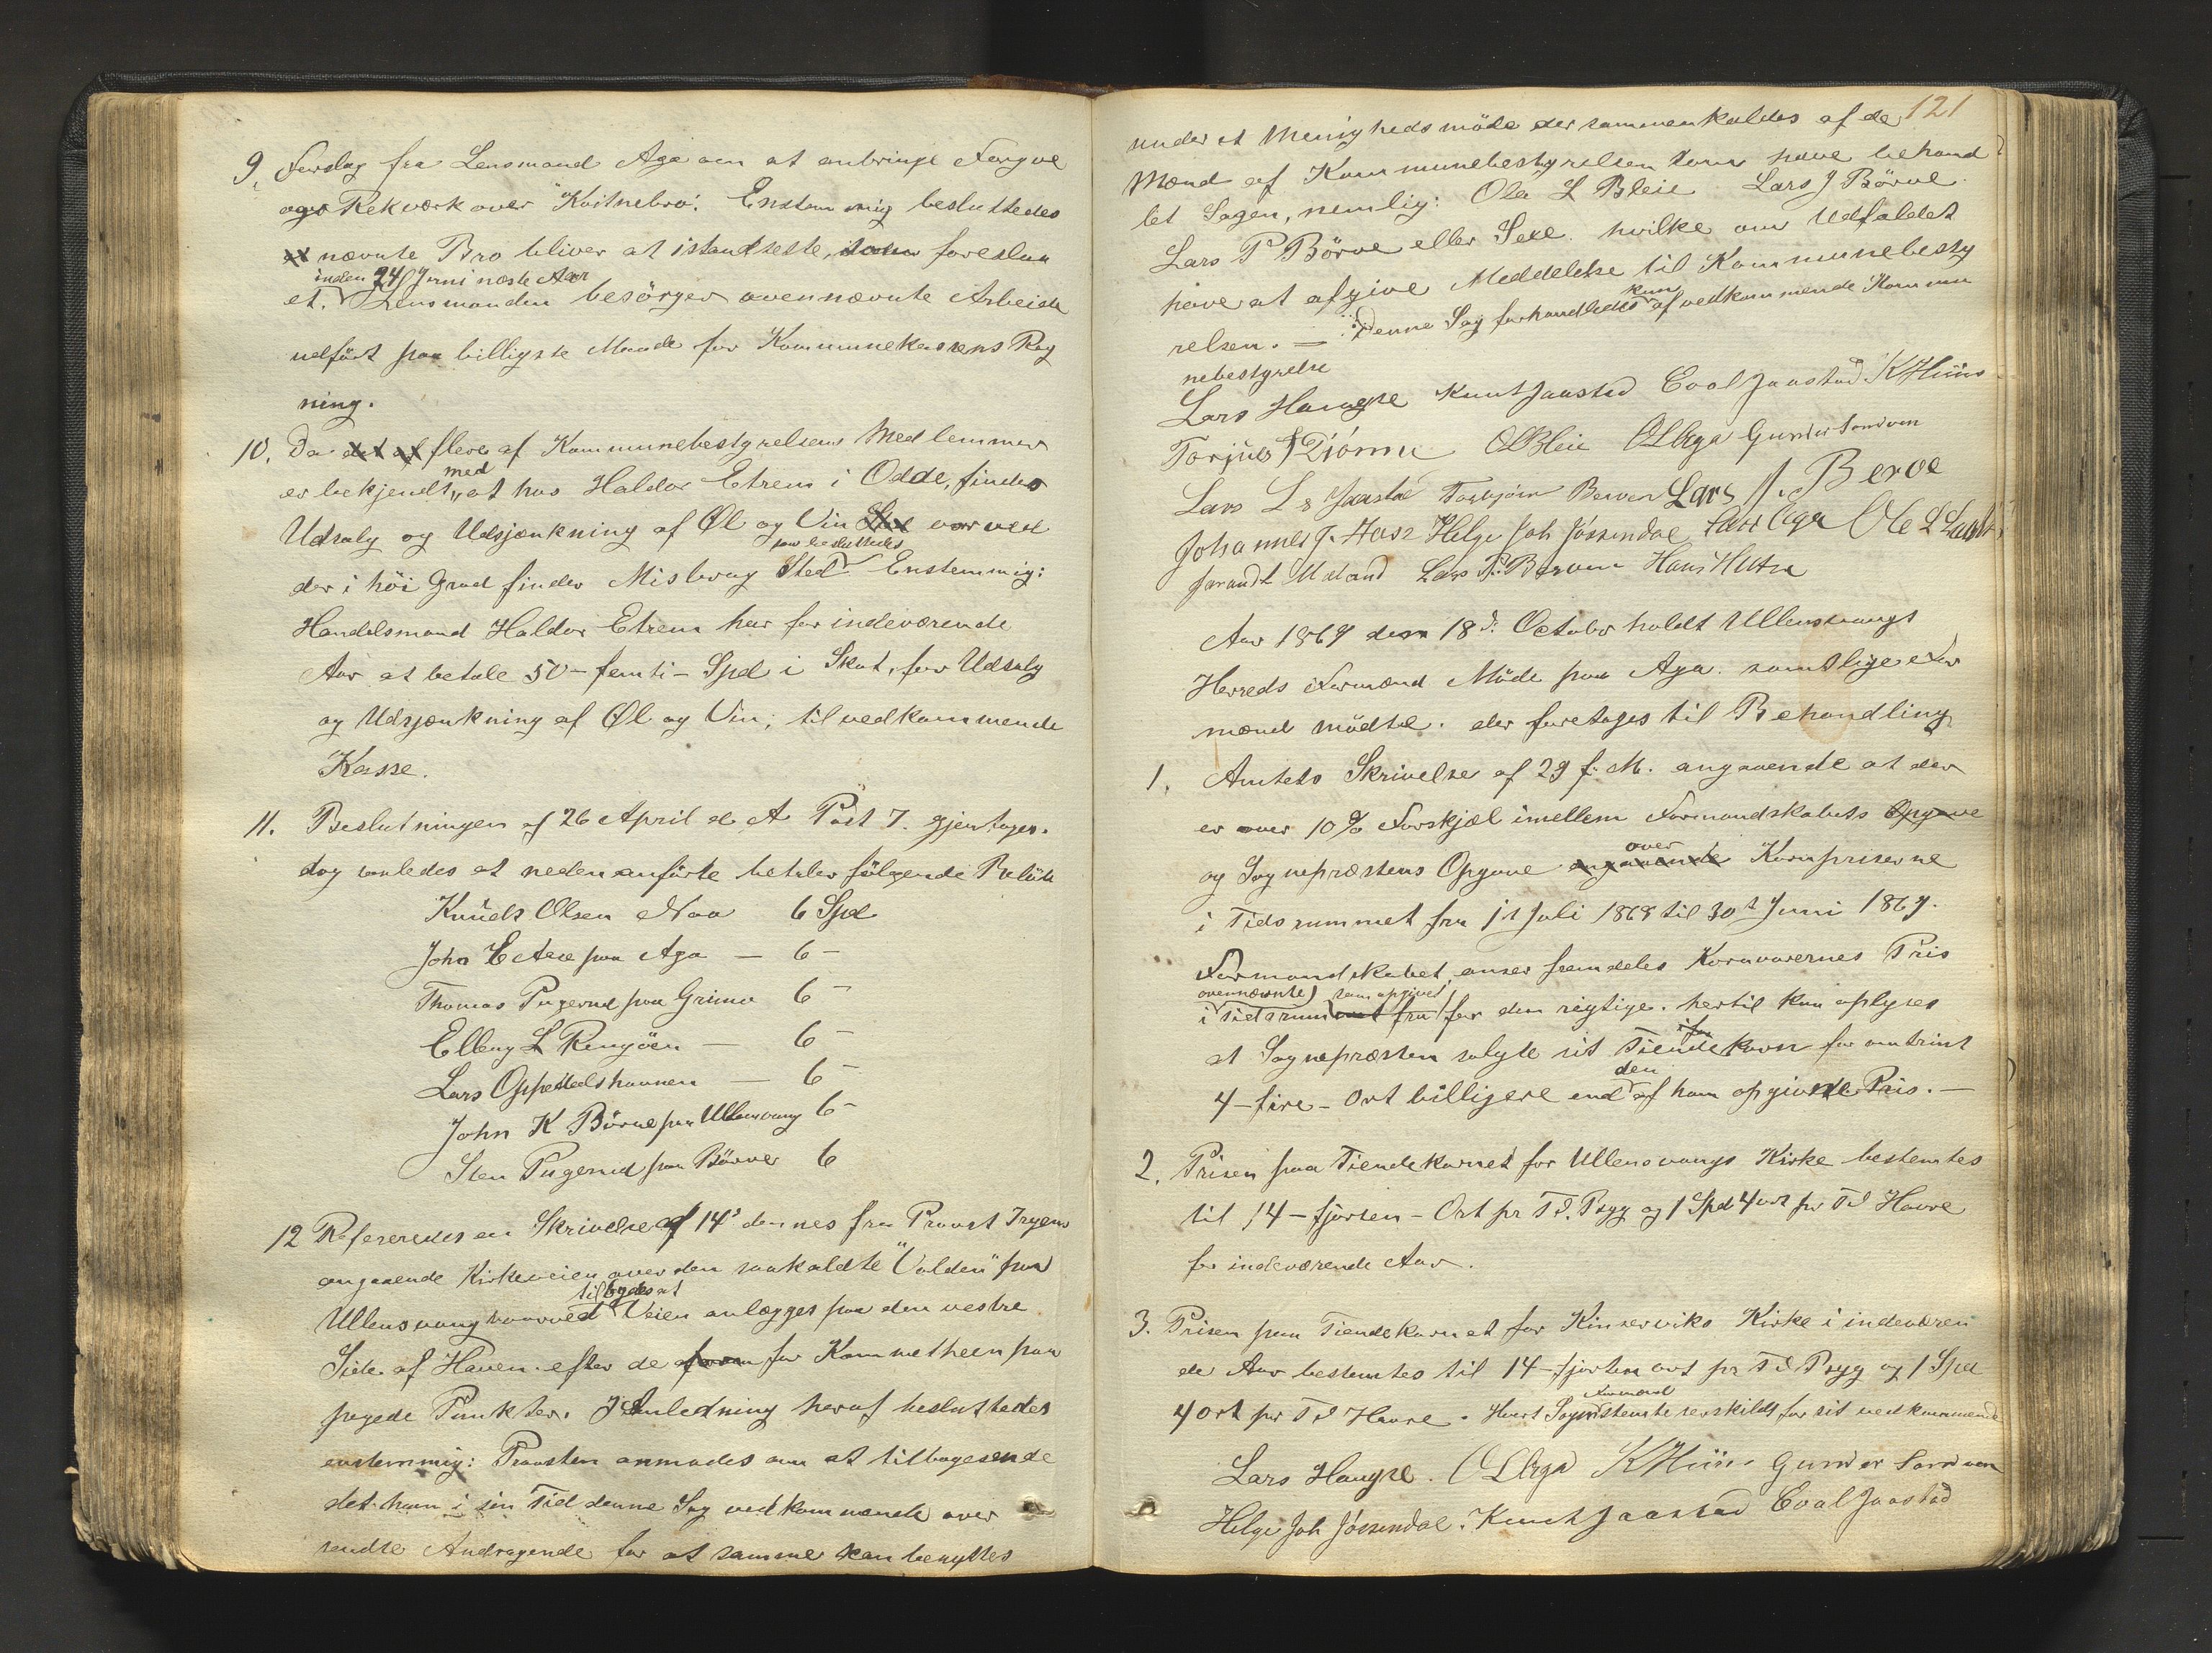 9. Forslag fra Lensmand Aga om at anbringe
og Rekværk over "Kvitnebro". Enstemmig besluttedes
at nævnte Bro bliver at istandsætte, som foreslaa
inden 24 Juni næste Aar
et. Lensmanden besörger ovennævnte Arbeide
udfört paa billigste Maade for Kommunekassens Reg
ning.
10. Da det af flere af Kommunebestyrelsens Medlemmer
er bekjendt med at hos Haldor Eitrem i Odde, findes
Udsalg og Udsjænkning af Øl og Vin hvorved
der i höi Grad finder Misbrug Sted saa besluttedes Enstemmig:
Handelsmand Haldor Eitrem har for indeværende
Aar at betale 50 - femti - Spd i Skat, for Udsalg
og Udsjænkning af Øl og Vin, til vedkommende
Kasse.
11. Beslutningen af 26 April d. A. Post 7. gjentages.
dog saaledes at nedenanförte betaler fölgende Belöb
Knuds Olsen Naa 6 Spd
John E Aese paa Aga — 6 -
Thomas Pugerud paa Grimo 6 -
Elling L Ringöen — 6 -
Lars Oppedalshavnen — 6 -
John K Börve paa Ullensvang 6 -
Sten Pugerud paa Börver 6
12 Refereredes en Skrivelse af 14d dennes fra Provst
angaaende Kirkeveien over den saakaldte "Volden" paa
Ullensvang hvorved tilbydes at Veien anlægges paa den vestre
Side af Haven efter de foran for Kommitheen paa
pegede Punkter. I Anledning heraf besluttedes
enstemmig: Provsten anmodes om at tilbagesende
det ham i sin Tid denne Sag vedkommende over
sendte Andragende for at samme kan benyttes
121
under et Menighedsmöde der sammenkaldes af de
Mænd af Kommunebestyrelsen som have behand
let Sagen, nemlig: Ola L Bleie Lars J Börve
Lars P Börve eller Sexe hvilke om Udfaldet
have at afgive Meddelelse til Kommunebesty
relsen. — Denne Sag forhandledes kun af vedkommende Kommu
nebestyrelse
Lars Haugse Knut Jaastad Evol Jaastad K Huus
Torjus Diönne OLBleie OLAga Gunder Sandven
Lars Ls Jaastad Torbjörn Berven Lars J. Berve
Johannes J. Hase Helge Joh Jössendal Lars Aga Ole L
Jørandt Maland Lars P. Berven Hans Huse
Aar 1869 den 18d October holdt Ullensvangs
Herreds Formænd Möde paa Aga. samtlige For
mænd mödte. der foretoges til Behandling
1. Amtets Skrivelse af 29 f. M. angaaende at der
er over 10 % Forskjæl imellem Formandskabets Opgave
og Sognepræstens Opgave angaaende over Kornpriserne
i Tidsrummet fra 1t Juli 1868 til 30t Juni 1869.
Formandskabet anser fremdeles Kornvarernes Pris
i ovennævnte Tidsrum som opgivet fra for den rigtige. hertil kan oplyses
at Sognepræsten solgte sit Tiendekorn for omtrint
4 - fire - Ort billigere end den af ham opgivende Pris. —
2. Prisen paa Tiendekornet for Ullensvangs Kirke bestemtes
til 14 - fjorten - Ort pr Td. Byg og 1 Spd 4 ort pr Td Havre
for indeværende Aar.
3. Prisen paa Tiendekornet for Kinserviks Kirke i indeværen
de Aar bestemtes til 14 - fjorten ort pr Td Byg og 1 Spd
4 Ort pr Td Havre. Hvert Sogns Formænd stemte serskildt for sit vedkommende
Lars Haugse. OLAga K Huus Gunder Sandven
Helge Joh Jössendal. Knut Jaastad Evol Jaastad